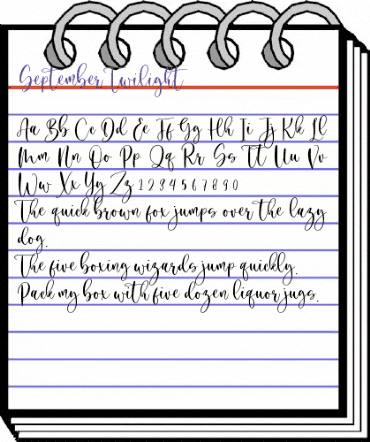 September Twilight
Aa Bb Cc Dd Ee Ff Gg Hh Ii Jj Kk Ll
Mm Nn Oo Pp Qq Rr Ss Tt Uu Vv
Ww Xx Yy Zz 1 2 3 4 5 6 7 8 9 0
The quick brown fox jumps over the lazy
dog.
The five boxing wizards jump quickly.
Pack my box with five dozen liquor jugs.